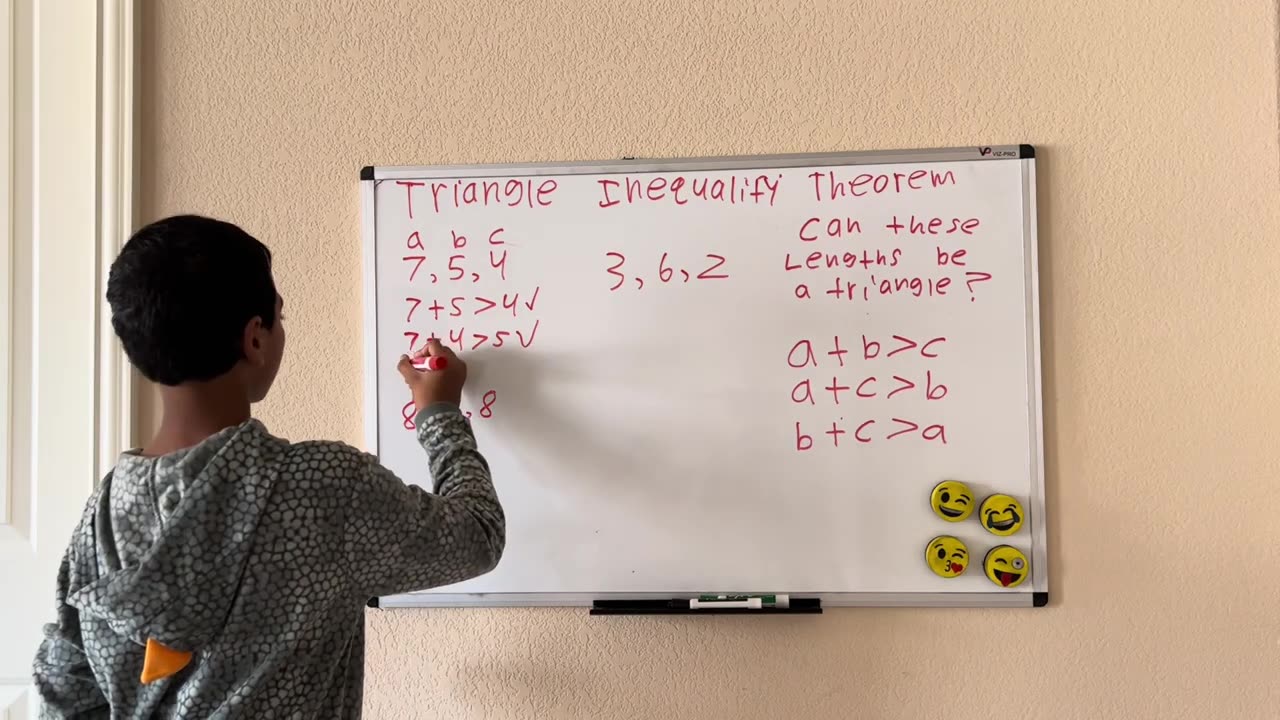 VIZ-PRO
Triangle Inequalify Theorem
a b c
7, 5, 4
7+5>4✓
7+4>5✓
8 , 8
3, 6, 2
Can these
Lengths be
a triangle?
a+b>c
a+c>b
b+c>a